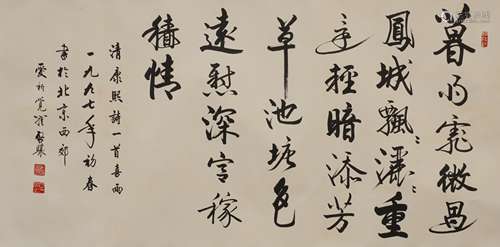 暮雨霏微過
鳳城飄〻灑〻重
還輕暗添芳
草池塘色
遠慰深宮稼
穡情
清康熙詩一首喜雨
一九九七年初春
書於北京西郊
愛新覺羅啟驤